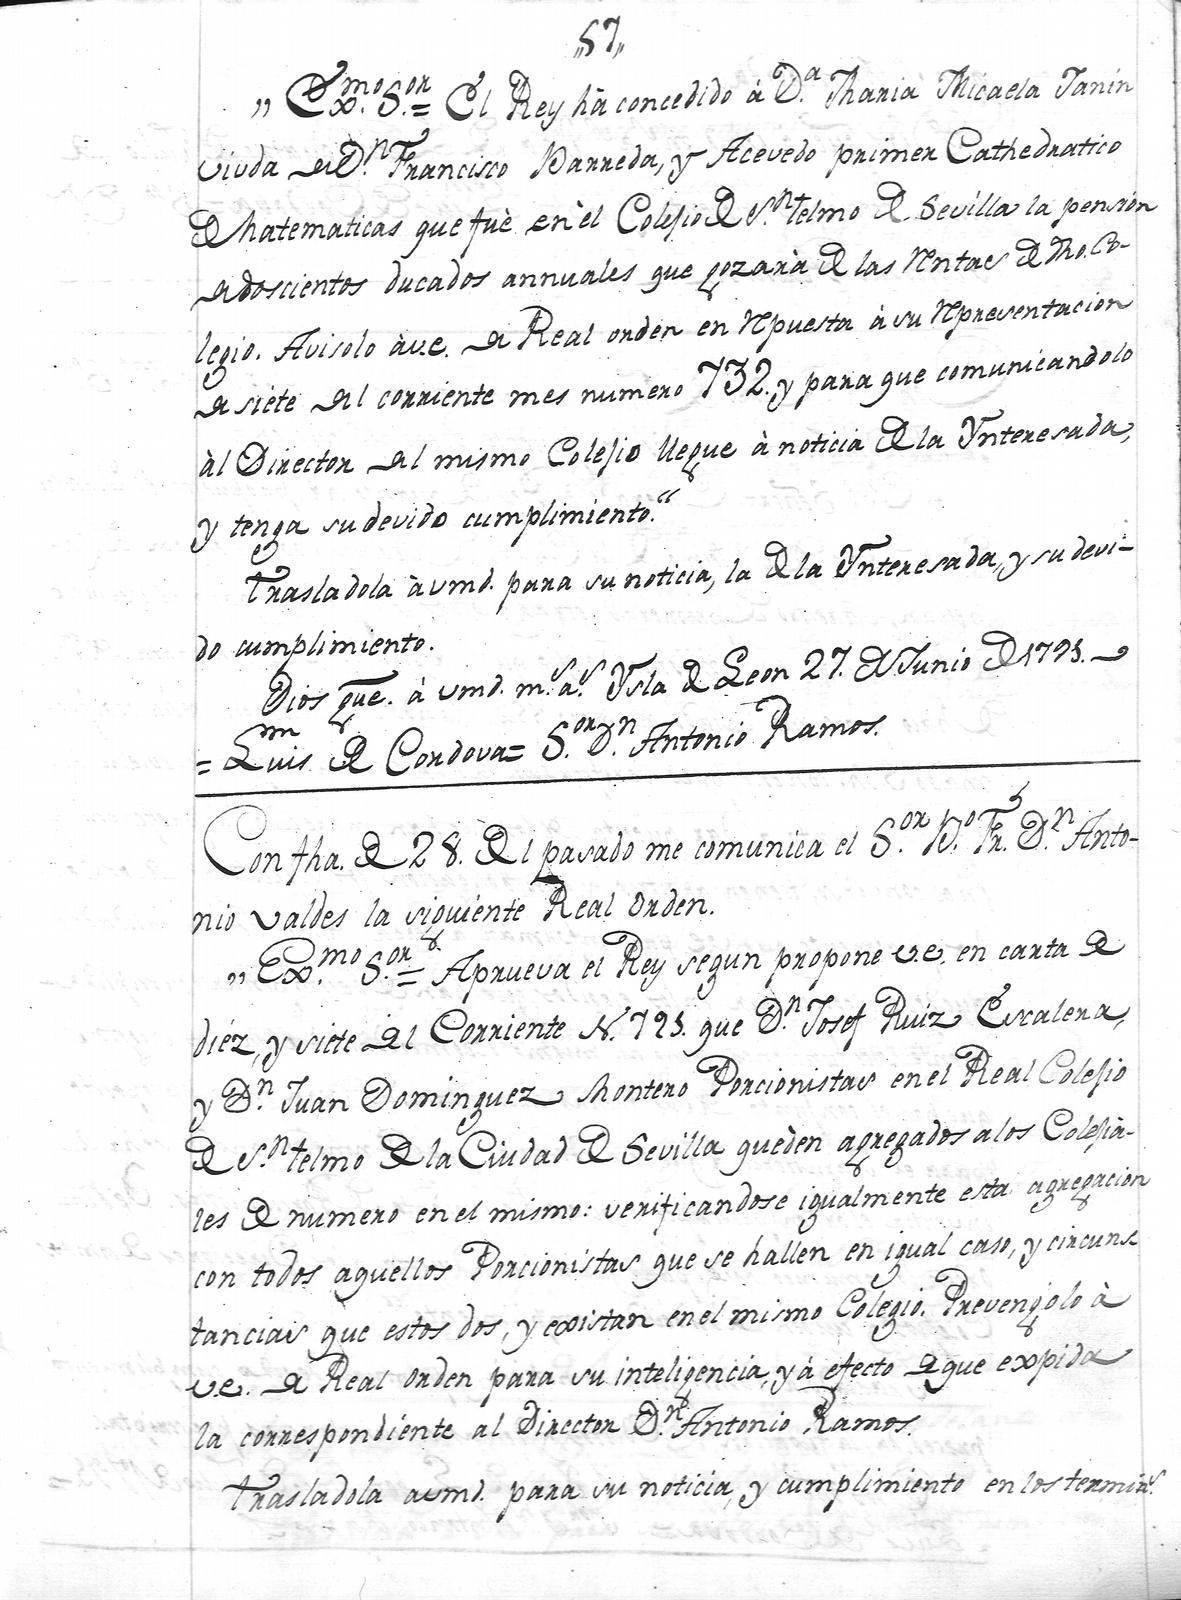 „57„
„ Ex.mo S.or = El Rey hà concedido à D.a Maria Micaela Tanin
viuda de D.n Francisco Barreda, y Acevedo primer Cathedratico
de Matematicas que fuè en èl Colejio de S.n telmo de Sevilla la pensión
de doscientos ducados annuales que gozarà de las Rentas de dho. Co-
legio. Avisolo à v.e. de Real orden en Rpuesta à su Rpresentacion
de siete del corriente mes numero 732. y para que comunicandolo
àl Director del mismo Colejio llegue à noticia de la Ynteresada,
y tenga su devido cumplimiento.“
Trasladola à vmd. para su noticia, la de la Ynteresada, y su devi-
do cumplimiento.
Dios gue. à vmd. m.s a.s Ysla de Leon 27. de Junio de 1793.
= Luis de Cordova = S.or D.n Antonio Ramos.
Con fha. de 28. del pasado me comunica el S.or B.o Fr. D.n Anto-
nio valdes la siguiente Real Orden.
„ Ex.mo S.or = Aprueva el Rey segun propone v.e. en carta de
diéz, y siete del Corriente N. 793. que D.n Josef Ruiz Escalera,
y D.n Juan Dominguez Montero Porcionistas en el Real Colejio
de S.n telmo de la Ciudad de Sevilla quèden agregados a los Colejià-
les de numero en el mismo: verificandose igualmente esta agregacion
con todos aquellos Porcionistas que se hallen en igual caso, y circuns
tancias que estos dos, y existan en el mismo Colegio. Prevengolo à
v.e. de Real Orden para su inteligencia, y à efecto de que expida
la correspondiente al Director D.n Antonio Ramos.
Trasladola a vmd. para su noticia, y cumplimiento en los termin.s